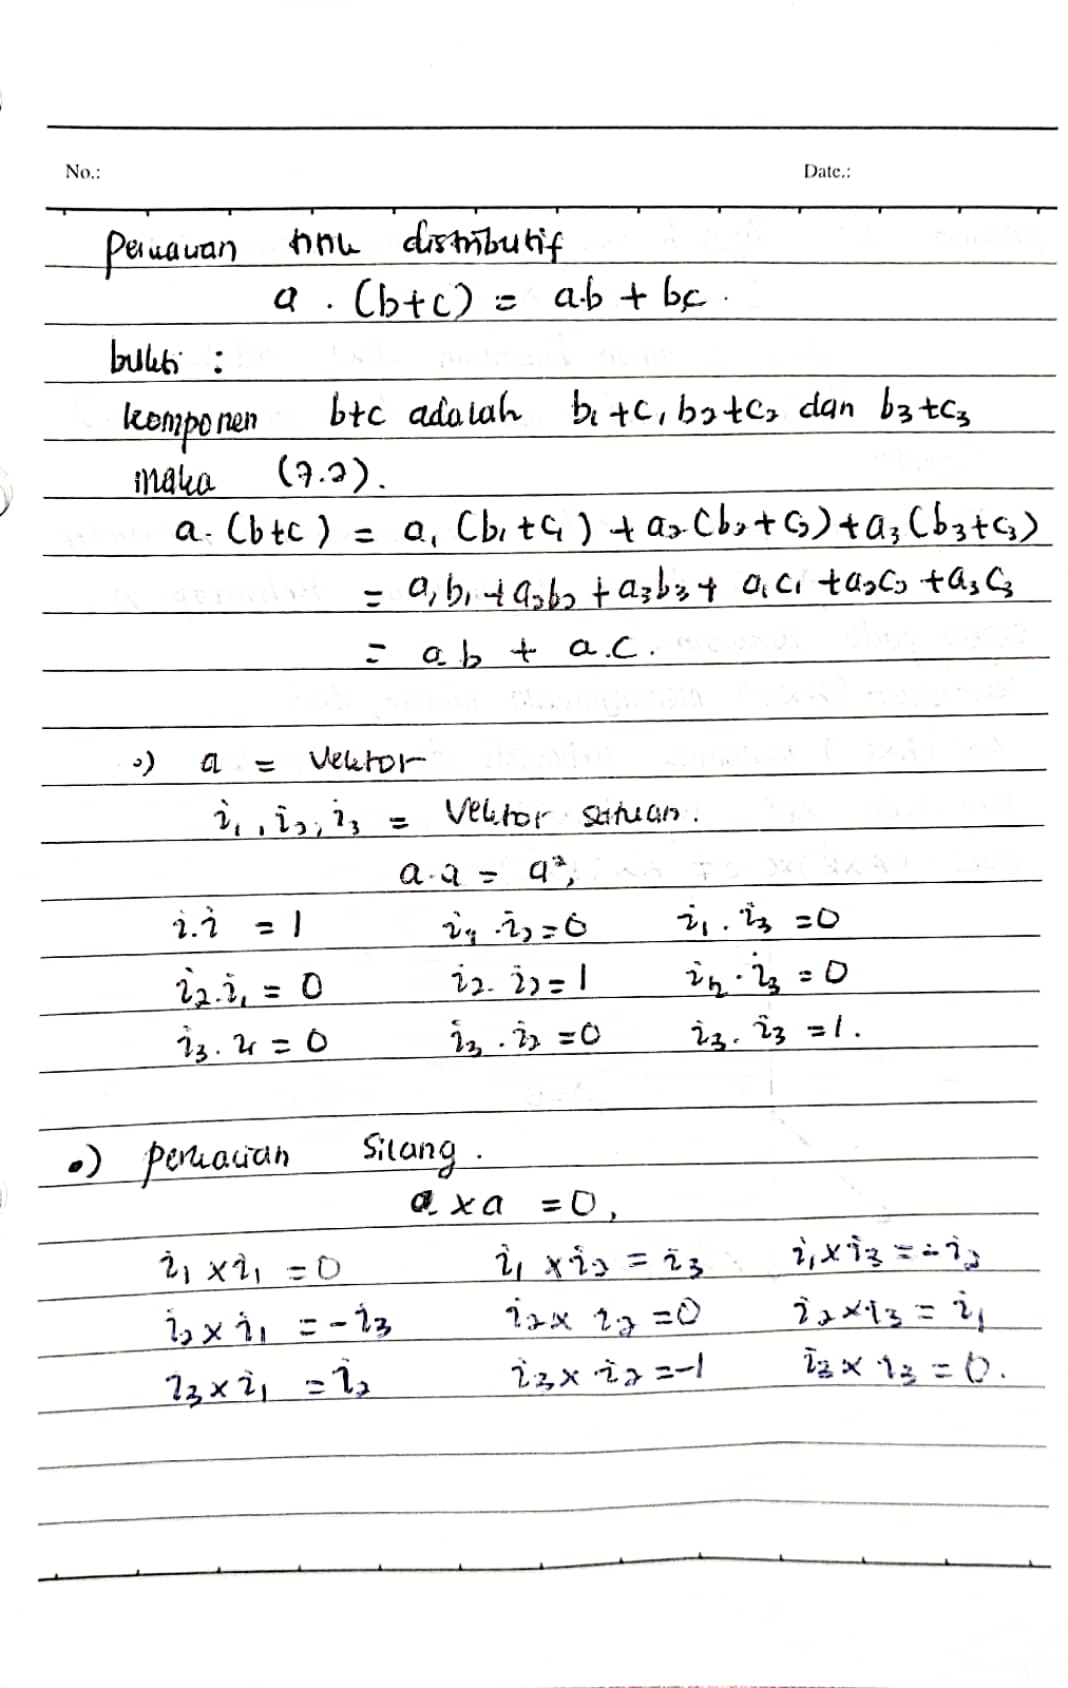 No.: Date.:
Perkalian titik distributif
a . (b+c) = a.b + b.c.
bukti :
komponen b+c adalah b₁+c₁ b₂+c₂ dan b₃+c₃
maka (2.2).
a. (b+c) = a₁ (b₁+c₁) + a₂ (b₂+c₂) + a₃ (b₃+c₃)
= a₁b₁ + a₂b₂ + a₃b₃ + a₁c₁ + a₂c₂ + a₃c₃
= a b + a.c.
•) a = Vektor
i₁, i₂, i₃ = Vektor satuan.
a.a = a²,
i.i = 1 i₁ . i₂ = 0 i₁ . i₃ = 0
i₂.i₁ = 0 i₂. i₂ = 1 i₂ . i₃ = 0
i₃. i₁ = 0 i₃ . i₂ = 0 i₃. i₃ = 1.
•) perkalian Silang.
a x a = 0,
i₁ x i₁ = 0 i₁ x i₂ = i₃ i₁ x i₃ = -i₂
i₂ x i₁ = -i₃ i₂ x i₂ = 0 i₂ x i₃ = i₁
i₃ x i₁ = i₂ i₃ x i₂ = -1 i₃ x i₃ = 0.